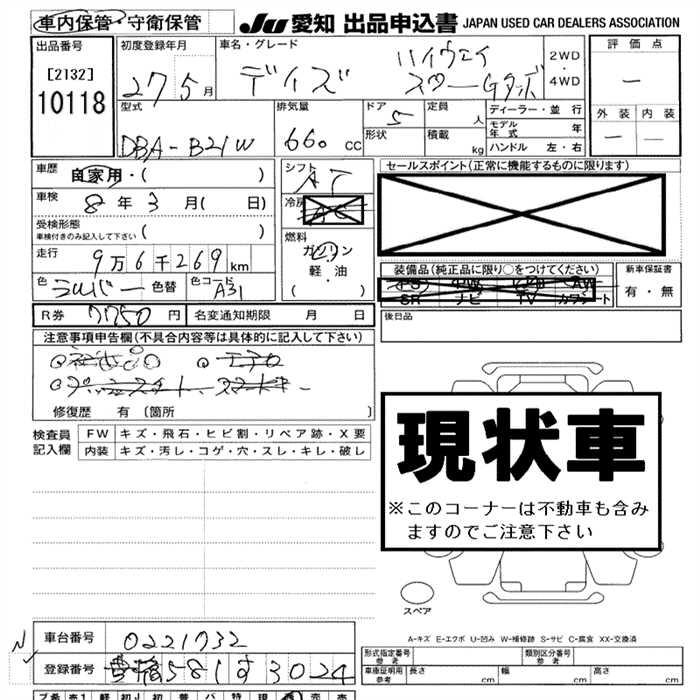 車内保管・守衛保管
JU 愛知 出品申込書 JAPAN USED CAR DEALERS ASSOCIATION
出品番号
[2132]
10118
初度登録年月
27 5月
車名・グレード
デイズ ハイウェイ
スターGターボ
2WD
・
4WD
評価点
—
外装 内装
— —
型式
DBA-B21W
排気量
660 cc
ドア 5
形状
定員 人
積載 kg
ディーラー・並行
モデル年式 年
ハンドル 左・右
車歴
自家用・( )
車検
8年3月( 日)
受検形態
車検付きのみ記入して下さい ( )
走行
9万6千269km
色 シルバー 色替 色コード A31
シフト
AT
冷房
AC
燃料
ガソリン
・
軽・油
( )
セールスポイント(正常に機能するものに限ります)
装備品(純正品に限り○をつけてください)
PS PW AW
SR ナビ TV カワシート
新車保証書
有・無
後日品
R券 7750円 名変通知期限 月 日
注意事項申告欄(不具合内容等は具体的に記入して下さい)
修復歴 有 〔箇所 〕
検査員
記入欄
FW キズ・飛石・ヒビ割・リペア跡・X要
内装 キズ・汚レ・コゲ・穴・スレ・キレ・破レ
現状車
※このコーナーは不動車も含み
ますのでご注意下さい
スペア
A-キズ E-エクボ U-凹み W-補修跡 S-サビ C-腐食 XX-交換済
車台番号 0221732
登録番号 豊橋581す3024
形式指定番号
参考
類別区分番号
参考
車庫証明用
参考
長さ cm 幅 cm 高さ cm